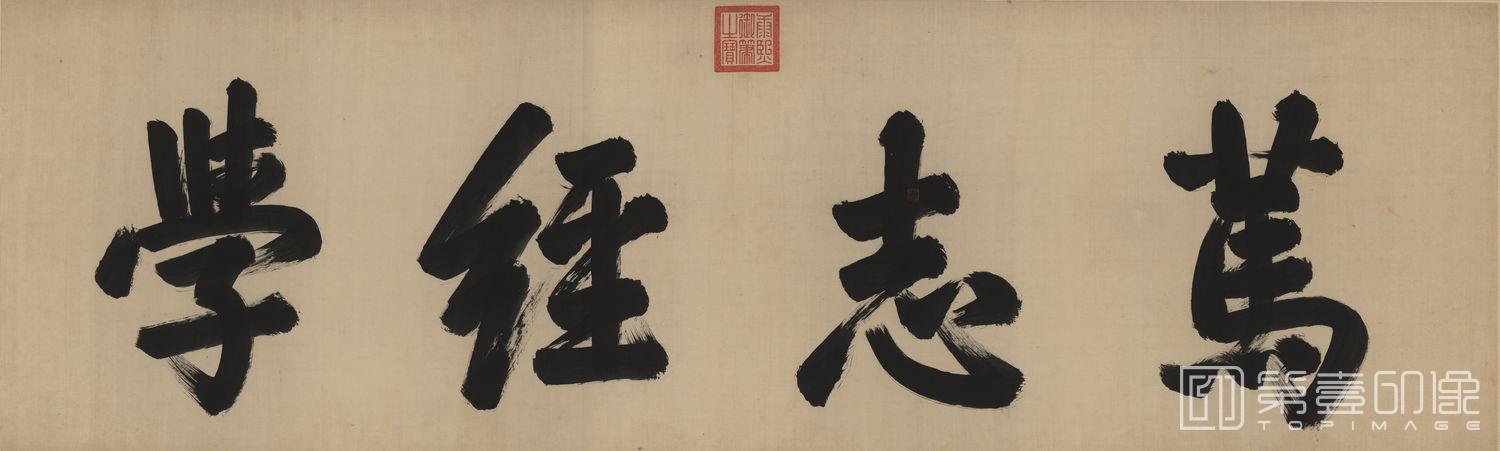 篤志經學
康熙御筆之寶
第壹印像
TOPIMAGE